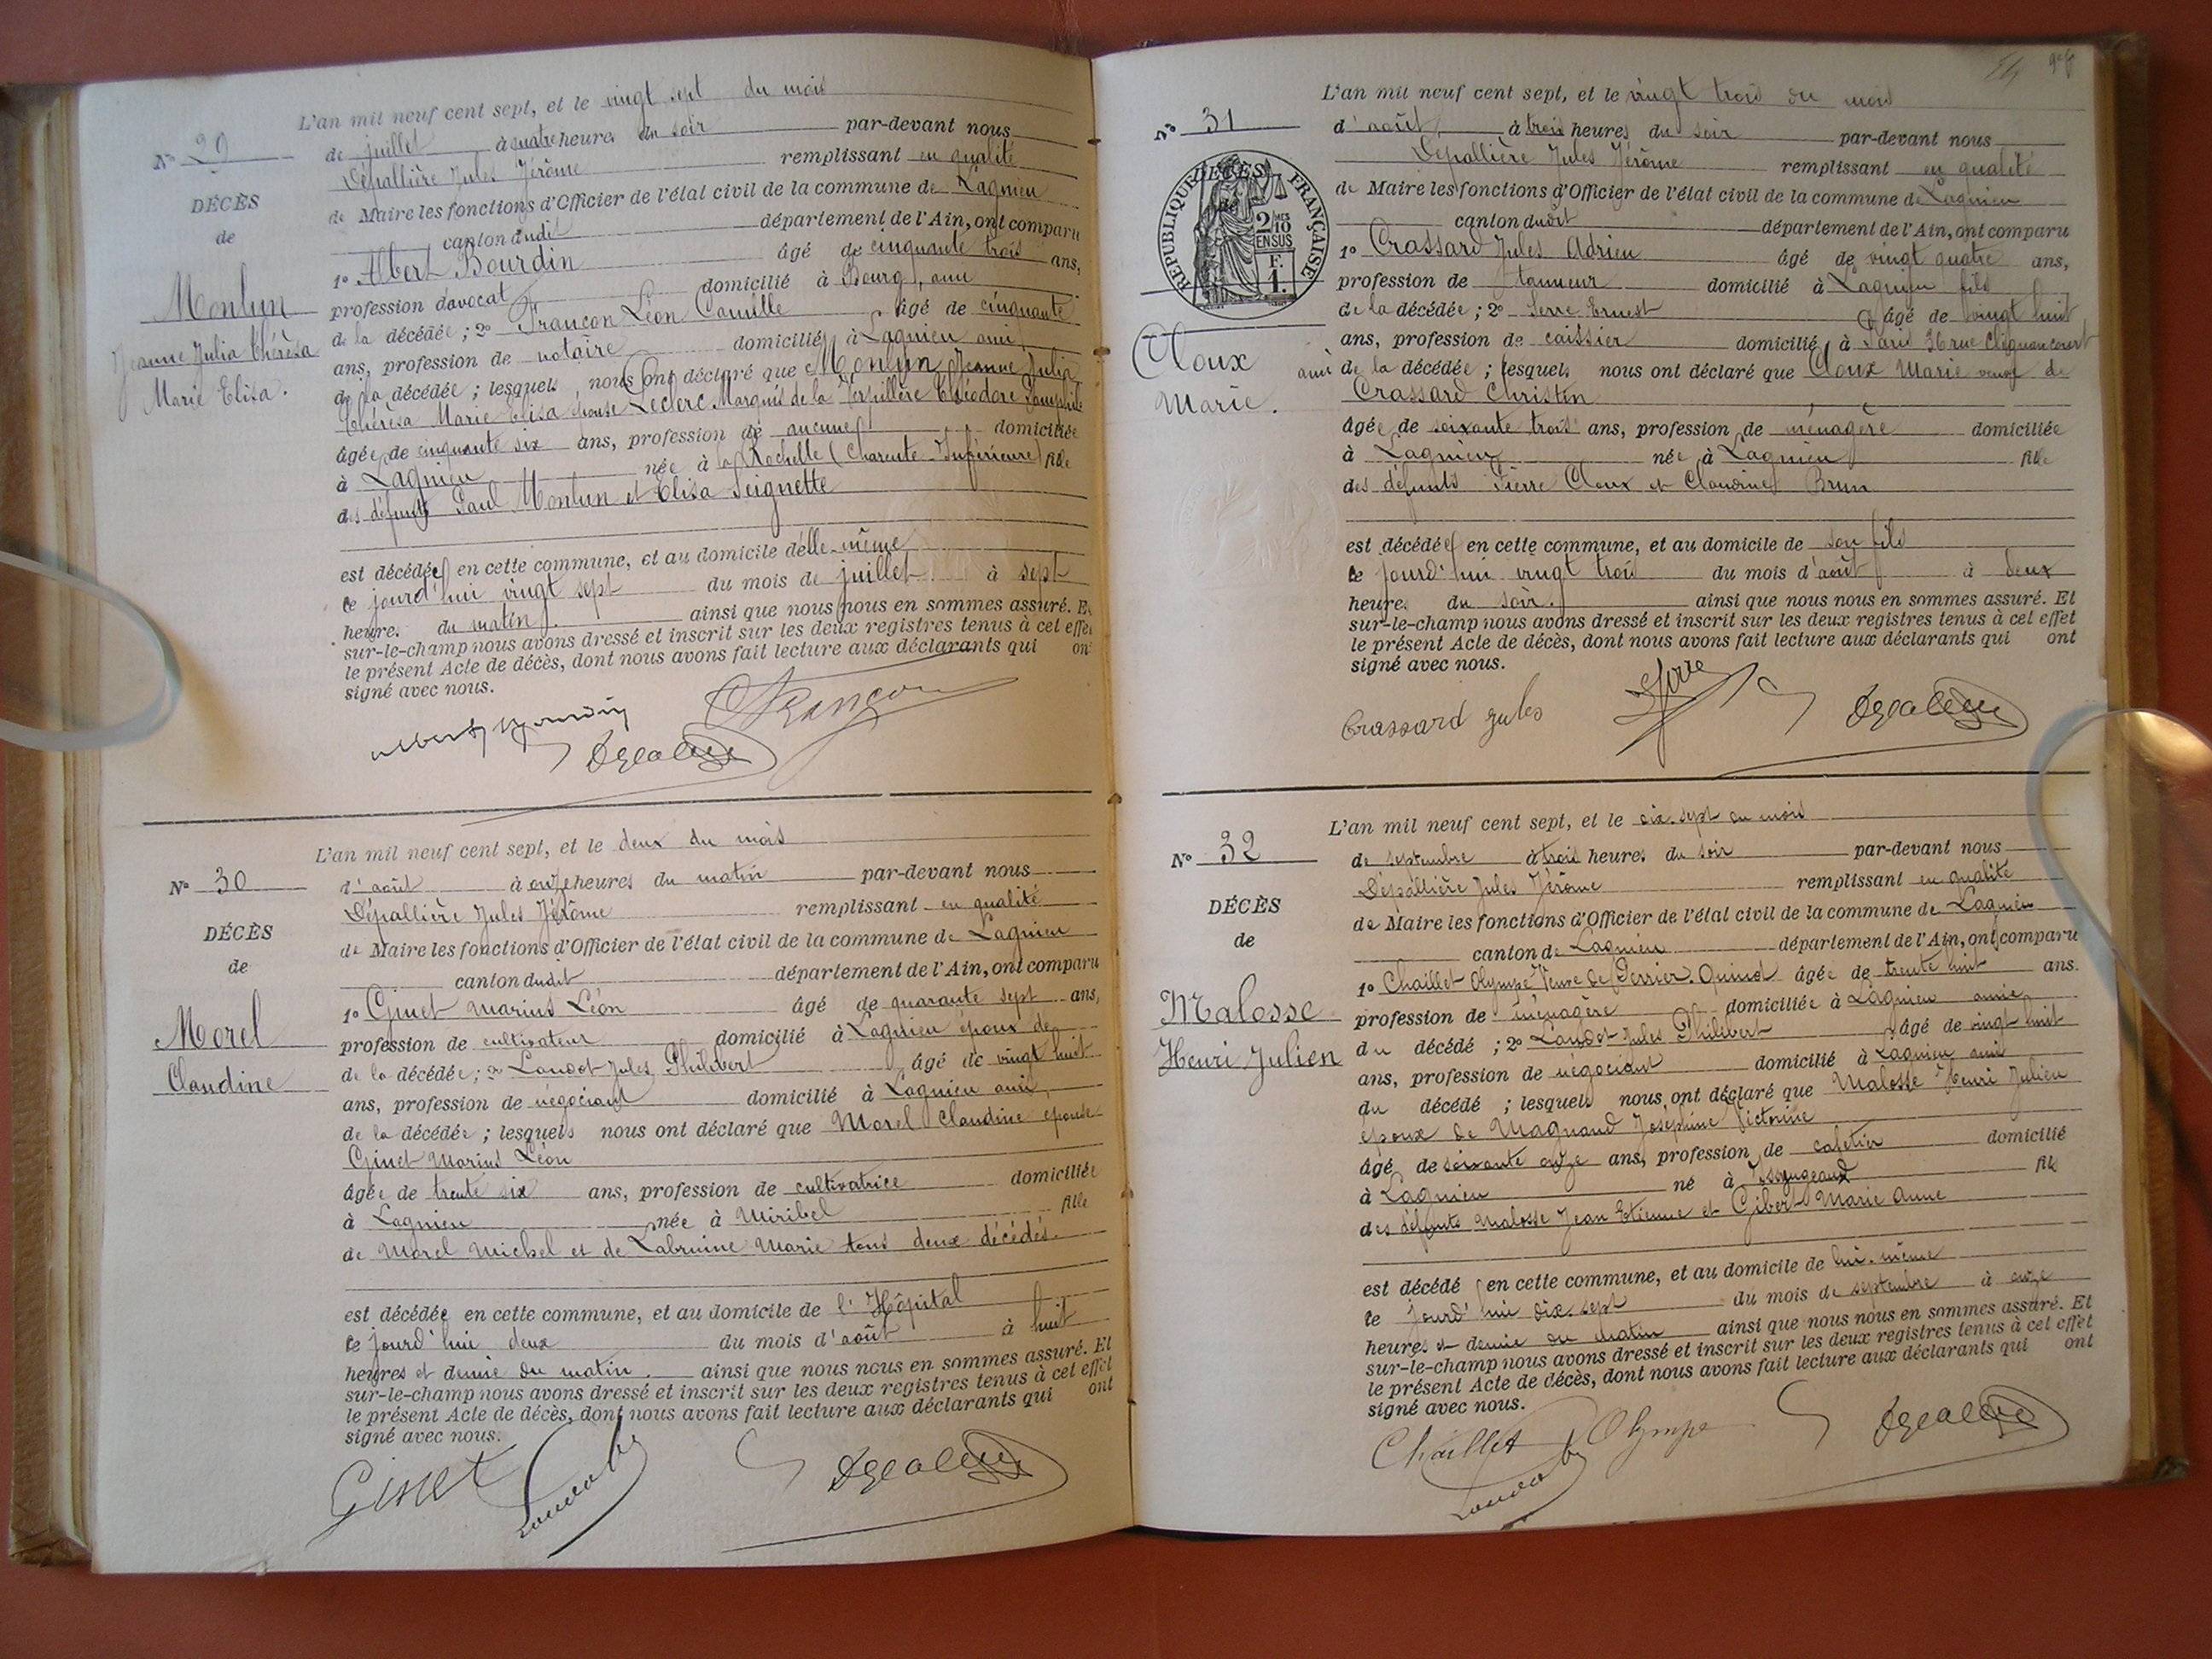 L'an mil neuf cent sept, et le vingt sept du mois
N° 29
de juillet à quatre heures du soir par-devant nous
Dépallière Jules Jérôme remplissant en qualité
DÉCÈS
de Maire les fonctions d'Officier de l'état civil de la commune de Lagnieu
de
canton dudit département de l'Ain, ont comparu
1° Albert Bourdin âgé de cinquante trois ans,
Monlun
profession d'avocat domicilié à Bourg, ami
de la décédée; 2° Françon Léon Camille âgé de cinquante
Jeanne Julia Thérèsa
ans, profession de notaire domicilié à Lagnieu ami
Marie Elisa.
de la décédée; lesquels nous ont déclaré que Monlun Jeanne Julia
Thérèsa Marie Elisa épouse Leclerc Marquis de la Verpillère Théodore
âgée de cinquante six ans, profession de aucune domiciliée
à Lagnieu née à la Rochelle (Charente-Inférieure) fille
des défunts Paul Monlun et Elisa Seignette
est décédée en cette commune, et au domicile d'elle-même
le jourd'hui vingt sept du mois de juillet à sept
heures du matin. ainsi que nous nous en sommes assuré. Et
sur-le-champ nous avons dressé et inscrit sur les deux registres tenus à cet effet
le présent Acte de décès, dont nous avons fait lecture aux déclarants qui ont
signé avec nous.
Albert Bourdin Françon
L'an mil neuf cent sept, et le deux du mois
N° 30
d'août à onze heures du matin par-devant nous
Dépallière Jules Jérôme remplissant en qualité
DÉCÈS
de Maire les fonctions d'Officier de l'état civil de la commune de Lagnieu
de
canton dudit département de l'Ain, ont comparu
1° Ginet Marius Léon âgé de quarante sept ans,
Morel
profession de cultivateur domicilié à Lagnieu époux de
Claudine
de la décédée; 2° Laudot Jules Philibert âgé de vingt huit
ans, profession de négociant domicilié à Lagnieu ami
de la décédée; lesquels nous ont déclaré que Morel Claudine épouse
Ginet Marius Léon
âgée de trente six ans, profession de cultivatrice domiciliée
à Lagnieu née à Miribel fille
de Morel Michel et de Labruine Marie tous deux décédés.
est décédée en cette commune, et au domicile de l'Hôpital
le jourd'hui deux du mois d'août à huit
heures et demie du matin. ainsi que nous nous en sommes assuré. Et
sur-le-champ nous avons dressé et inscrit sur les deux registres tenus à cet effet
le présent Acte de décès, dont nous avons fait lecture aux déclarants qui ont
signé avec nous.
Ginet
L'an mil neuf cent sept, et le vingt trois du mois
N° 31
d'août à trois heures du soir par-devant nous
Dépallière Jules Jérôme remplissant en qualité
RÉPUBLIQUE FRANÇAISE
DÉCÈS
de
2/10 EN SUS
F. 1.
de Maire les fonctions d'Officier de l'état civil de la commune de Lagnieu
canton dudit département de l'Ain, ont comparu
1° Crassard Jules Adrien âgé de vingt quatre ans,
profession de tanneur domicilié à Lagnieu fils
de la décédée; 2° Serre Ernest âgé de vingt huit
ans, profession de caissier domicilié à Paris 36 rue Clignancourt
Cloux
ami de la décédée; lesquels nous ont déclaré que Cloux Marie veuve de
Marie.
Crassard Christin
âgée de soixante trois ans, profession de ménagère domiciliée
à Lagnieu née à Lagnieu fille
des défunts Pierre Cloux et Claudine Brun
est décédée en cette commune, et au domicile de son fils
le jourd'hui vingt trois du mois d'août à deux
heures du soir. ainsi que nous nous en sommes assuré. Et
sur-le-champ nous avons dressé et inscrit sur les deux registres tenus à cet effet
le présent Acte de décès, dont nous avons fait lecture aux déclarants qui ont
signé avec nous.
Crassard Jules Serre
L'an mil neuf cent sept, et le dix-sept du mois
N° 32
de septembre à trois heures du soir par-devant nous
Dépallière Jules Jérôme remplissant en qualité
DÉCÈS
de Maire les fonctions d'Officier de l'état civil de la commune de Lagnieu
de
canton de Lagnieu département de l'Ain, ont comparu
1° Chaillet Olympe Veuve de Perrier-Quinot âgée de trente huit ans.
Malosse
profession de ménagère domiciliée à Lagnieu amie
Henri Julien
du décédé; 2° Laudot Jules Philibert âgé de vingt huit
ans, profession de négociant domicilié à Lagnieu ami
du décédé; lesquels nous ont déclaré que Malosse Henri Julien
époux de Magnand Joséphine Victorine
âgé de soixante onze ans, profession de cafetier domicilié
à Lagnieu né à Yssingeaux fils
des défunts Malosse Jean Etienne et Gibert Marie Anne
est décédé en cette commune, et au domicile de lui-même
le jourd'hui dix-sept du mois de septembre à onze
heures et demie du matin ainsi que nous nous en sommes assuré. Et
sur-le-champ nous avons dressé et inscrit sur les deux registres tenus à cet effet
le présent Acte de décès, dont nous avons fait lecture aux déclarants qui ont
signé avec nous.
Chaillet Olympe